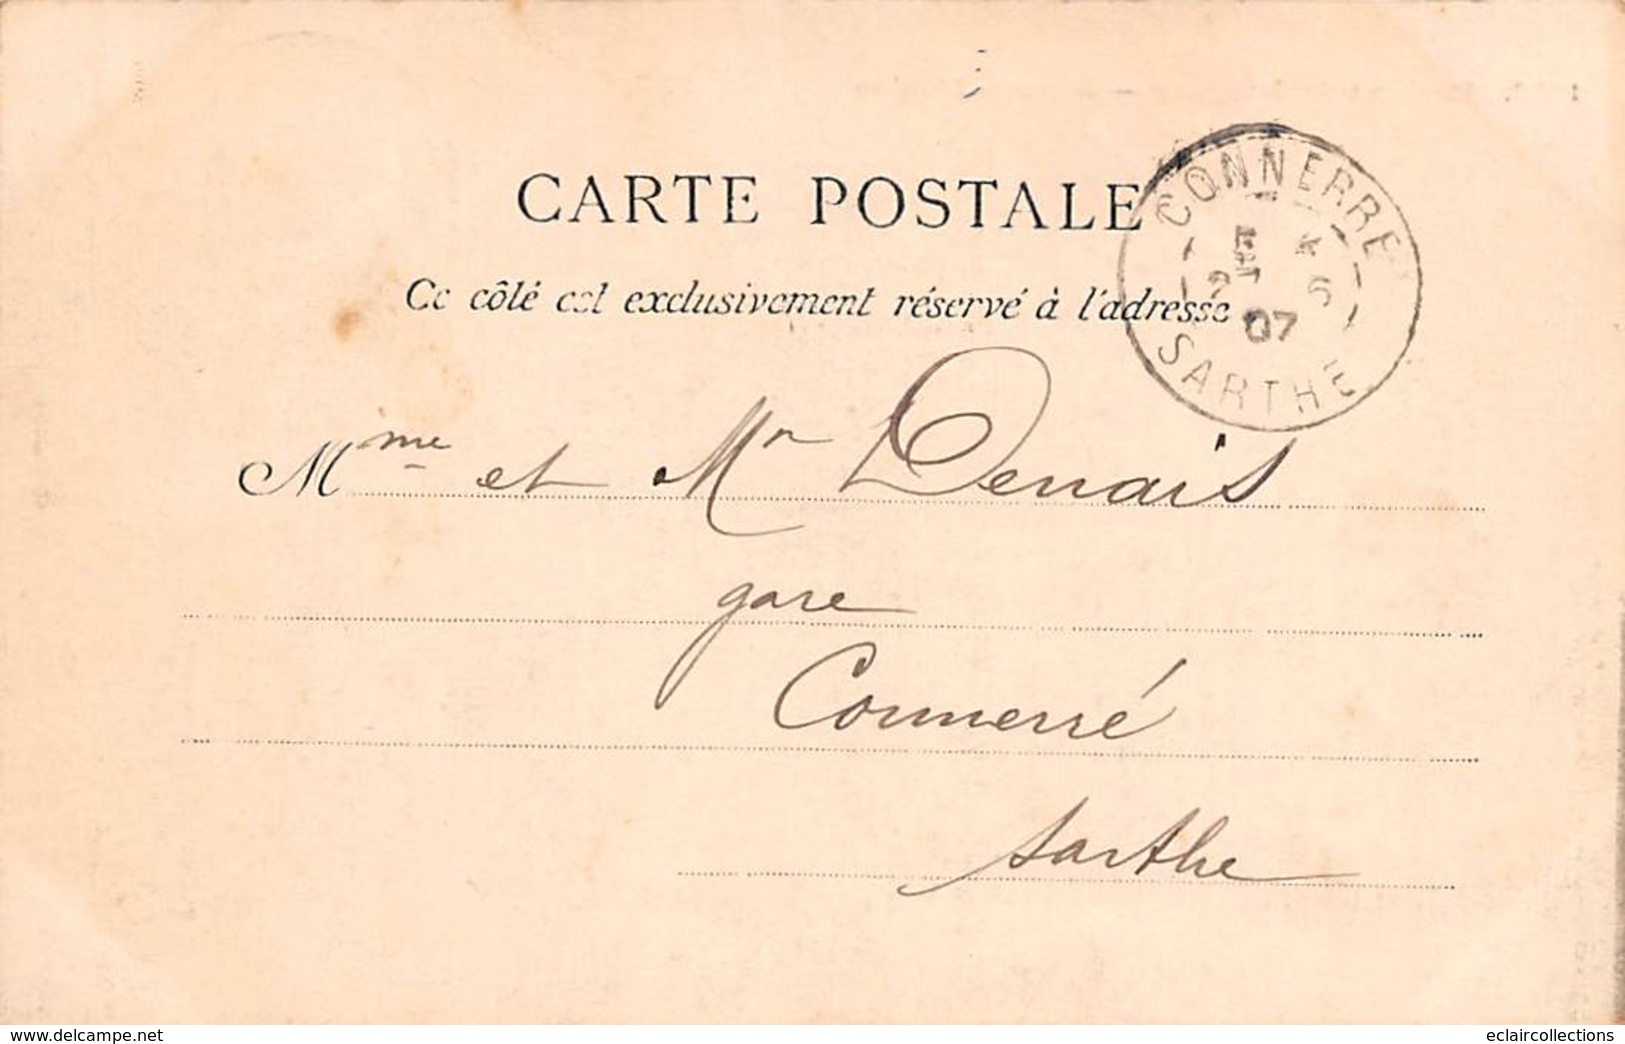 CARTE POSTALE
Ce côté est exclusivement réservé à l'adresse
CONNERRE
07
SARTHE
Mme et Mr Denais
gare
Connerré
Sarthe
www.delcampe.net
eclaircollections